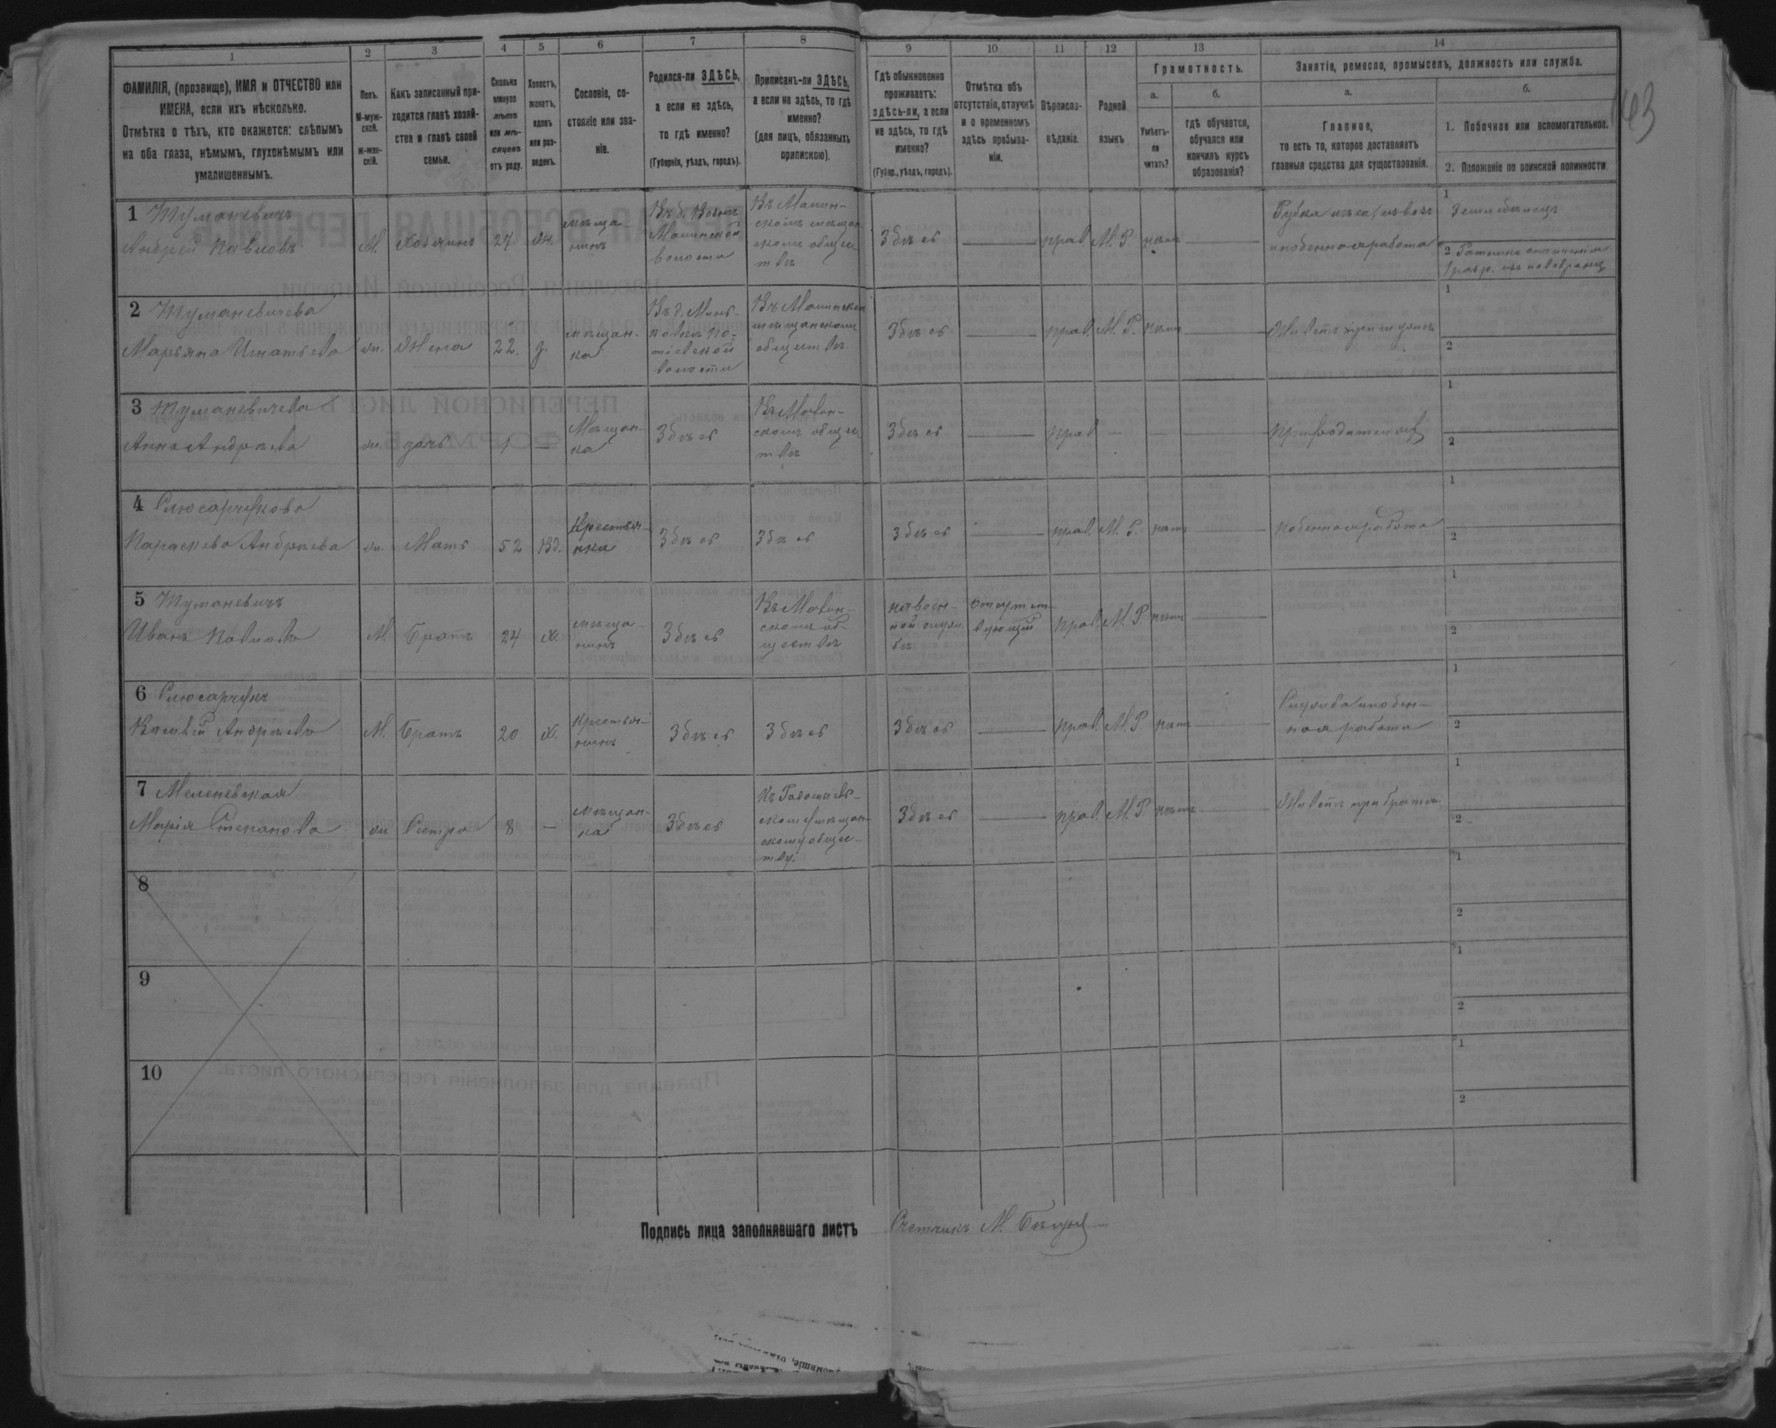 1 2 3 4 5 6 7 8 9 10 11 12 13 14
ФАМИЛІЯ, (прозвище), ИМЯ и ОТЧЕСТВО или
ИМЕНА, если ихъ нѣсколько.
Отмѣтка о тѣхъ, кто окажется: слѣпымъ
на оба глаза, нѣмымъ, глухонѣмымъ или
умалишеннымъ.
Полъ.
М-муж-
ской.
Ж-жен-
скій.
Какъ записанный при-
ходится главѣ хозяй-
ства и главѣ своей
семьи.
Сколько
минуло
лѣтъ
или мѣ-
сяцевъ
отъ роду.
Холостъ,
женатъ,
вдовъ
или раз-
веденъ.
Сословіе, со-
стояніе или зва-
ніе.
Родился-ли ЗДѢСЬ,
а если не здѣсь,
то гдѣ именно?
(Губернія, уѣздъ, городъ).
Приписанъ-ли ЗДѢСЬ,
а если не здѣсь, то гдѣ
именно?
(для лицъ, обязанныхъ
припискою).
Гдѣ обыкновенно
проживаетъ:
здѣсь-ли, а если
не здѣсь, то гдѣ
именно?
(Губер., уѣздъ, городъ).
Отмѣтка объ
отсутствіи, отлучкѣ
и о временномъ
здѣсь пребыва-
ніи.
Вѣроиспо-
вѣданіе.
Родной
языкъ
Грамотность.
а.
Умѣетъ-
ли
читать?
б.
гдѣ обучается,
обучался или
кончилъ курсъ
образованія?
Занятіе, ремесло, промыселъ, должность или служба.
а.
Главное,
то есть то, которое доставляетъ
главныя средства для существованія.
б.
1. Побочное или вспомогательное.
2. Положеніе по воинской повинности
143
1 Туманевичъ
Андрей Павловъ
М. Хозяинъ 27 Ж.
мѣща-
нинъ
Въ Малин-
скомъ мѣщан-
скомъ общес-
твѣ
Здѣсь прав. М. Р. нѣтъ
1
2
2 Туманевичева
Марьяна Игнатьева
жи. Жена 22. з.
мѣщан-
ка
Въ Малинском
мѣщанскомъ
обществѣ
Здѣсь прав. М. Р. нѣтъ Живетъ при мужѣ
1
2
3 Туманевичева
Анна Андреева
жи. дочь 1
Мѣщан-
ка
Здѣсь
Въ Малин-
скомъ общес
твѣ
Здѣсь прав
1
2
4 Слюсарчукова
Параскева Андреева
жи. Мать 52 Вд.
Крестьян-
нка
Здѣсь Здѣсь Здѣсь прав. М. Р. нѣтъ поденная работа
1
2
5 Туманевичъ
Иванъ Павлова
М. Братъ 24 Х.
мѣща-
нинъ
Здѣсь
Въ Малин-
скомъ об-
ществѣ
на воен-
ной служ
бѣ
отсутст-
вующій
прав. М. Р. нѣтъ
1
2
6 Слюсарчукъ
Василій Андреева
М. Братъ 20 Х.
крестьян-
нинъ
Здѣсь Здѣсь Здѣсь прав. М. Р. нѣтъ
Служба и поден-
ная работа
1
2
7 Меленевская
Марія Степанова
жи Сестра 8
мѣщан-
ка
Здѣсь
Къ Радомысль-
скому мѣщан-
скому общес-
тву.
Здѣсь прав. М. Р. нѣтъ Живетъ при братѣ
1
2
8
1
2
9
1
2
10
1
2
Подпись лица заполнявшаго листъ Счетчикъ М.